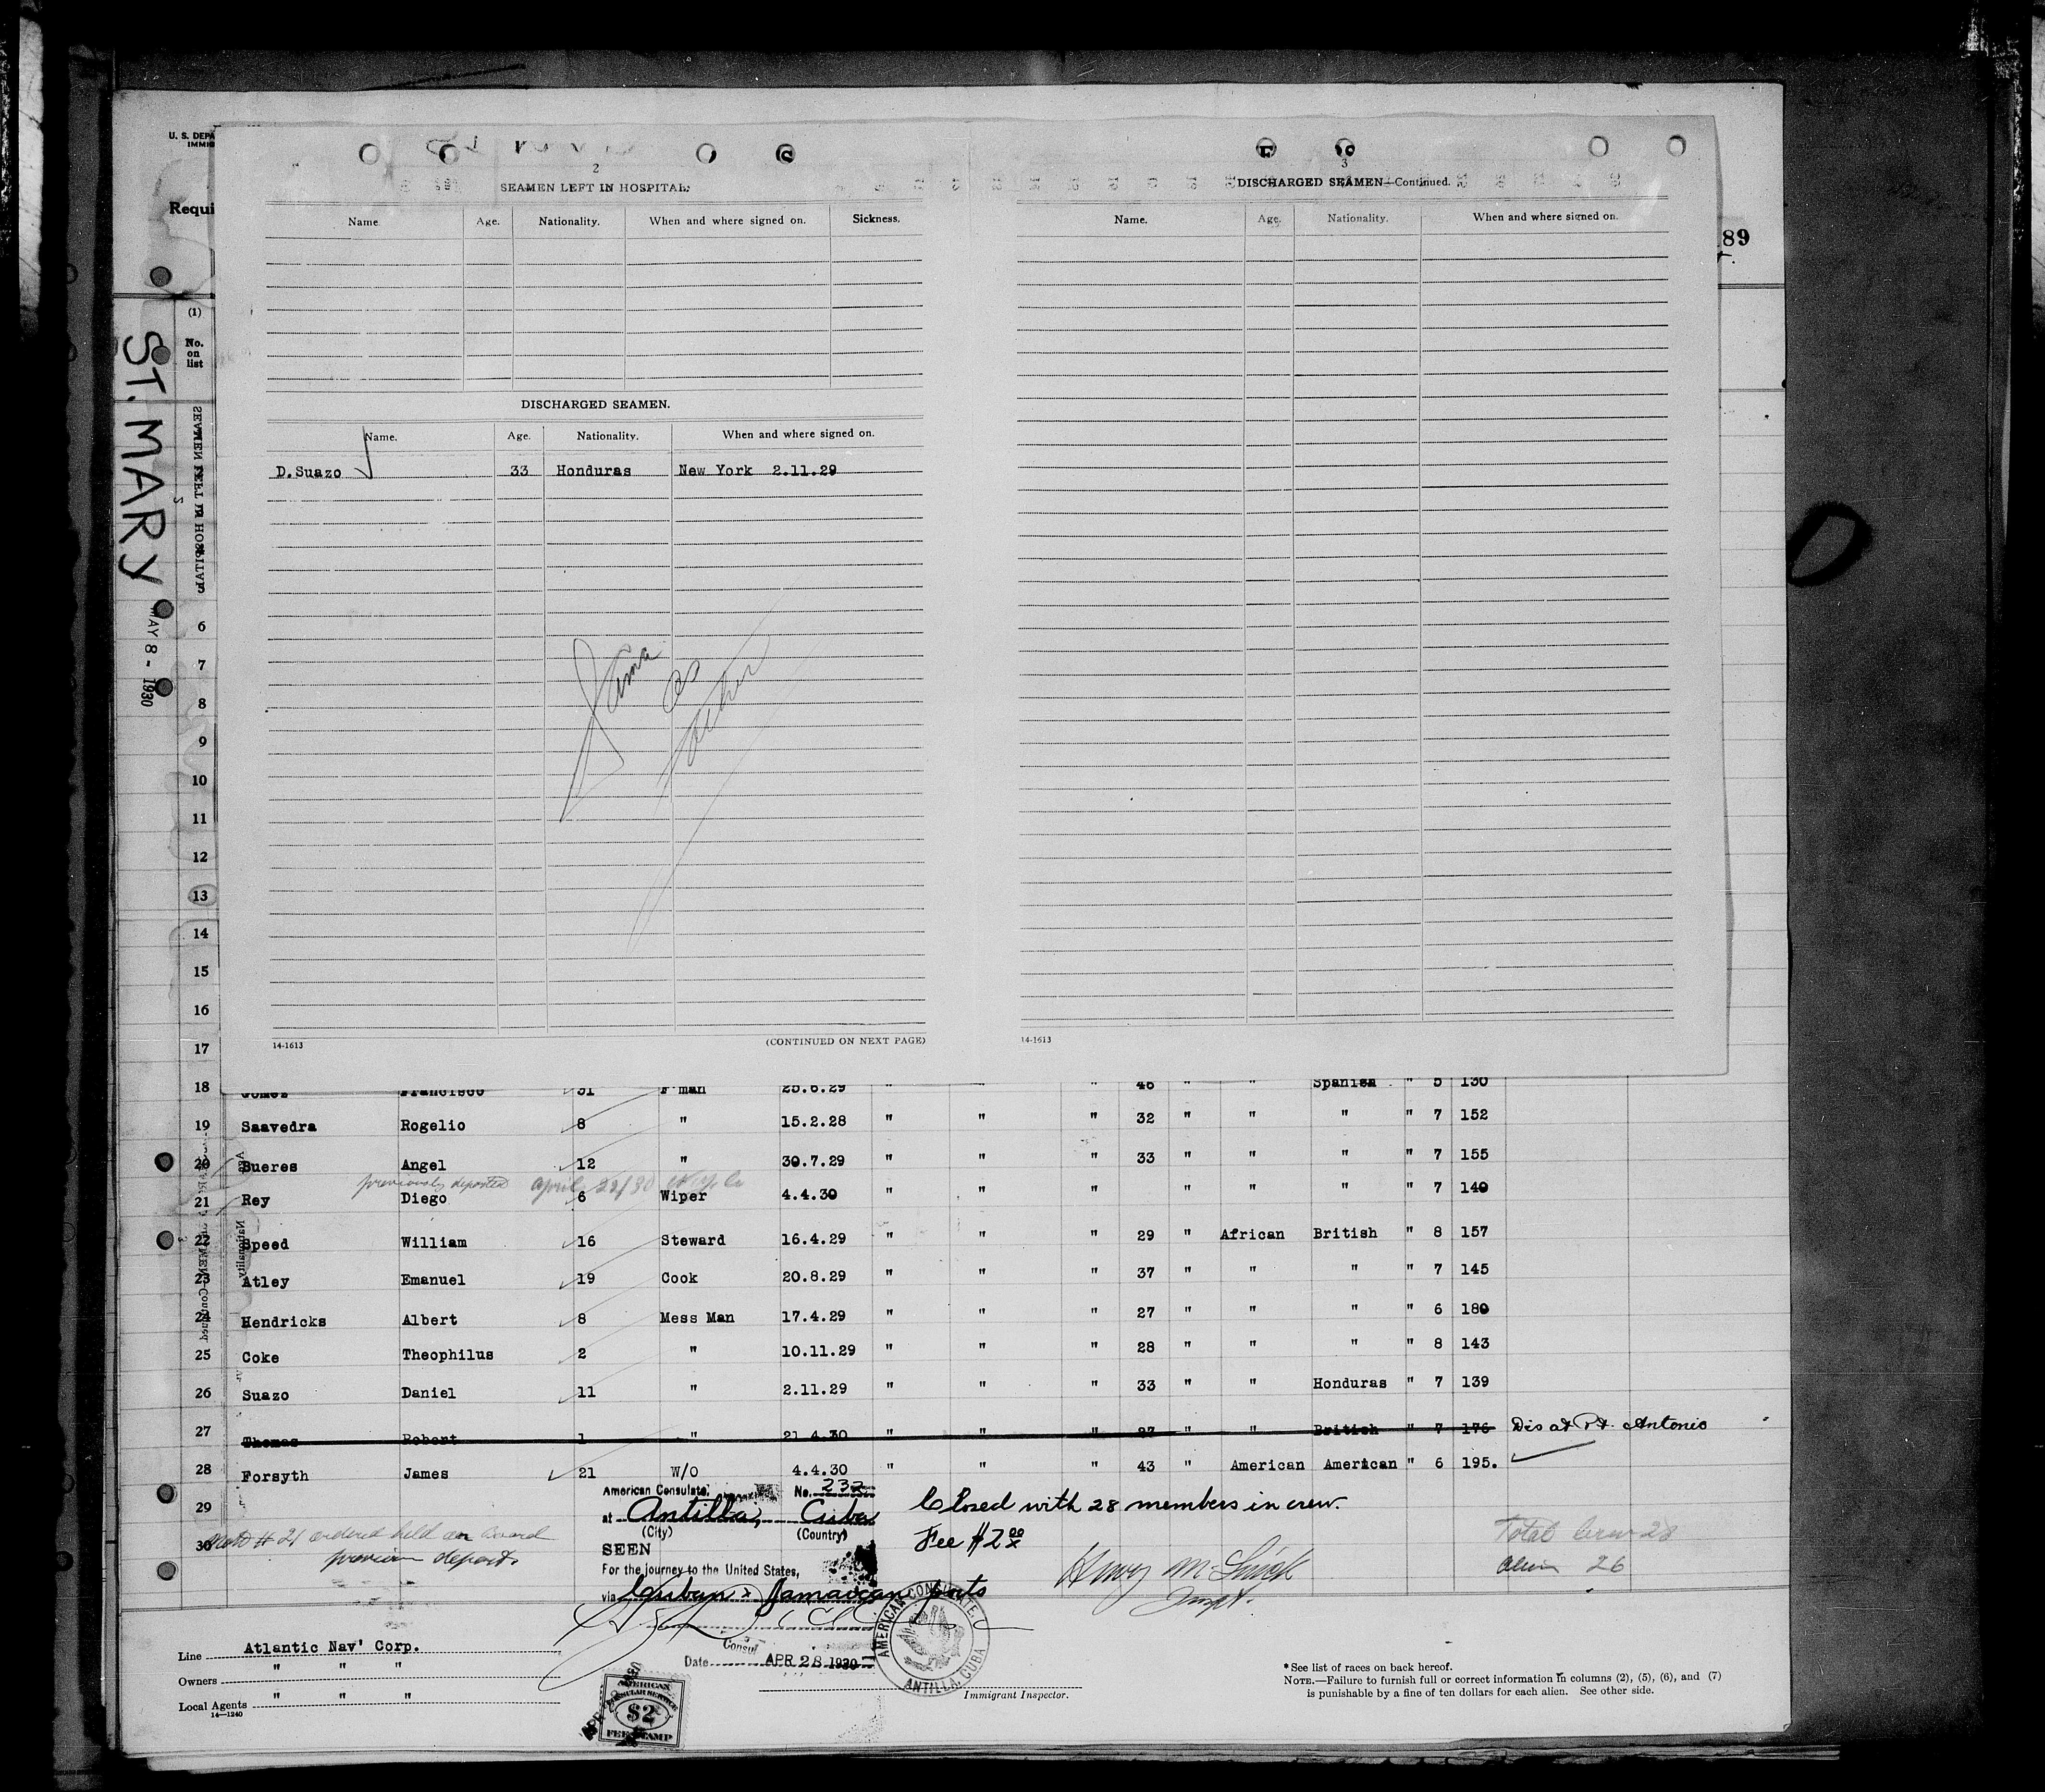 U. S. DEPA
IMMIG
Requi
89
ST. MARY
MAY 8 - 1930
(1)
No. on list
SEAMEN LEFT IN HOSPITAL
2
SEAMEN LEFT IN HOSPITAL.
Name. Age. Nationality. When and where signed on. Sickness.
DISCHARGED SEAMEN.
Name. Age. Nationality. When and where signed on.
D.Suazo 33 Honduras New York 2.11.29
Same as
14-1613 (CONTINUED ON NEXT PAGE)
3
DISCHARGED SEAMEN—Continued.
Name. Age. Nationality. When and where signed on.
14-1613
6
7
8
9
10
11
12
13
14
15
16
17
18 Gomez Francisco 31 F'man 25.6.29 " " " 46 " " Spanish " 5 130
19 Saavedra Rogelio 8 " 15.2.28 " " " 32 " " " " 7 152
20 Bueres Angel 12 " 30.7.29 " " " 33 " " " " 7 155
previously deported April 22/30
21 Rey Diego 6 Wiper 4.4.30 " " " " " " 7 140
22 Speed William 16 Steward 16.4.29 " " " 29 " African British " 8 157
23 Atley Emanuel 19 Cook 20.8.29 " " " 37 " " " " 7 145
24 Hendricks Albert 8 Mess Man 17.4.29 " " " 27 " " " " 6 180
25 Coke Theophilus 2 " 10.11.29 " " " 28 " " " " 8 143
26 Suazo Daniel 11 " 2.11.29 " " " 33 " " Honduras " 7 139
27 Thomas Robert 1 " 21.4.30 " " " 27 " " British " 7 176 Dis at Pt. Antonio
28 Forsyth James 21 W/O 4.4.30 " " " 43 " American American " 6 195.
29
30
# 21 ordered held on board
previous deports
American Consulate, No. 232
at Antilla, Cuba
(City) (Country)
SEEN
For the journey to the United States,
via Cuban & Jamaican ports
Consul
Date APR 28 1930
AMERICAN CONSULATE
ANTILLA, CUBA
AMERICAN
CONSULAR SERVICE
$2
FEE STAMP
Closed with 28 members in crew.
Fee $2.00
Total Crew 28
Alien 26
Immigrant Inspector.
Line Atlantic Nav' Corp.
Owners " " "
Local Agents " " "
14—1240
* See list of races on back hereof.
NOTE.—Failure to furnish full or correct information in columns (2), (5), (6), and (7)
is punishable by a fine of ten dollars for each alien. See other side.